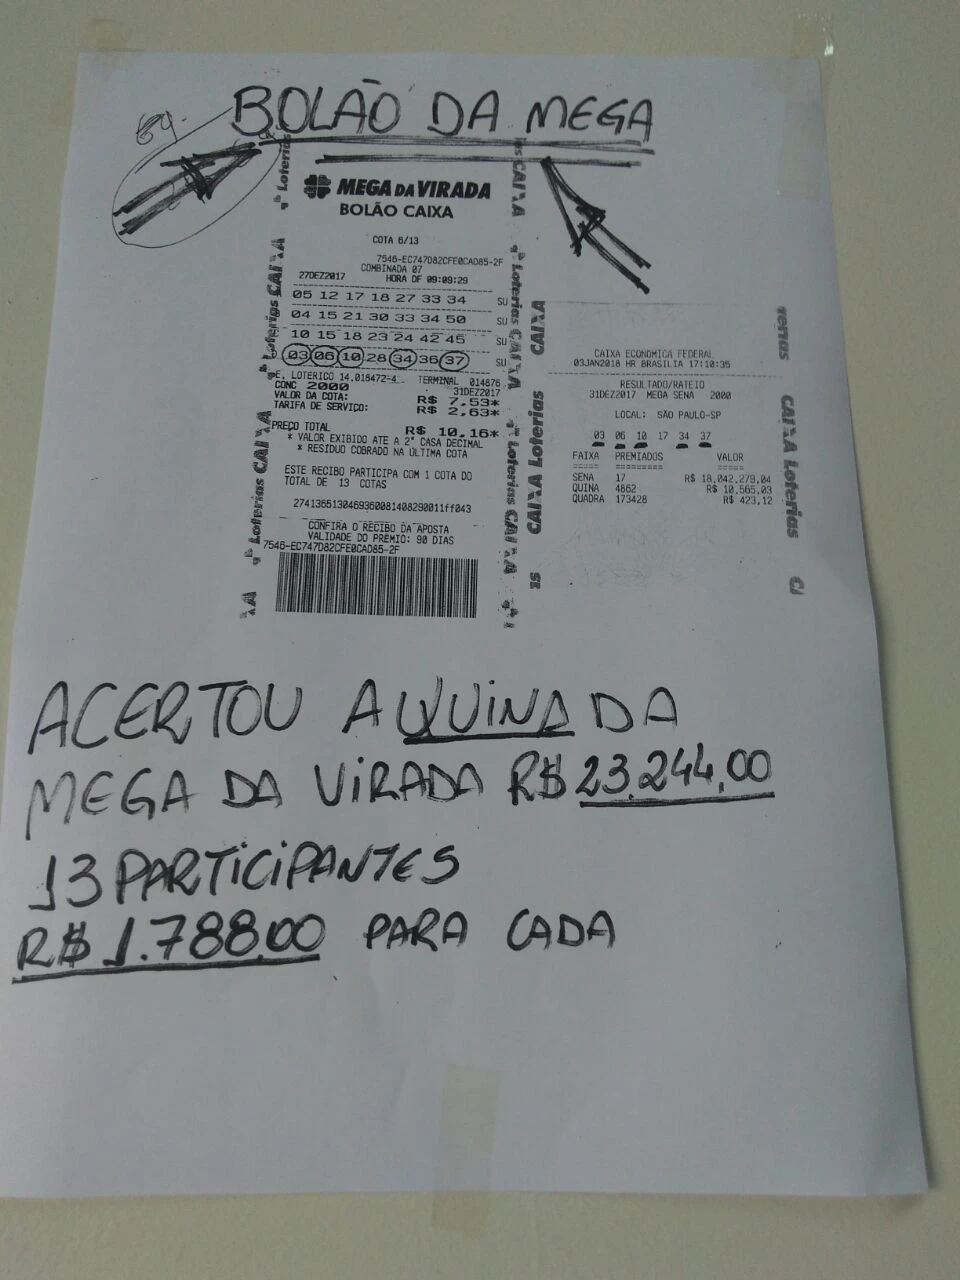 BOLÃO DA MEGA
MEGA DA VIRADA
BOLÃO CAIXA
COTA 6/13
7546-EC747D82CFE0CAD85-2F
COMBINADA 07
27DEZ2017 HORA DF 09:09:29
05 12 17 18 27 33 34 SU
04 15 21 30 33 34 50 SU
10 15 18 23 24 42 45 SU
03 06 10 28 34 36 37 SU
E. LOTERICO 14.018472-4 TERMINAL 014876
CONC 2000 31DEZ2017
VALOR DA COTA: R$ 7,53*
TARIFA DE SERVIÇO: R$ 2,63*
PREÇO TOTAL R$ 10,16*
* VALOR EXIBIDO ATE A 2ª CASA DECIMAL
* RESIDUO COBRADO NA ÚLTIMA COTA
ESTE RECIBO PARTICIPA COM 1 COTA DO
TOTAL DE 13 COTAS
2741365130469360081408290011ff043
CONFIRA O RECIBO DA APOSTA
VALIDADE DO PRÊMIO: 90 DIAS
7546-EC747D82CFE0CAD85-2F
Loterias CAIXA
Loterias CAIXA
CAIXA Loterias
CAIXA ECONOMICA FEDERAL
03JAN2018 HR BRASILIA 17:10:35
RESULTADO/RATEIO
31DEZ2017 MEGA SENA 2000
LOCAL: SÃO PAULO-SP
03 06 10 17 34 37
FAIXA PREMIADOS VALOR
SENA 17 R$ 18,042,279,04
QUINA 4862 R$ 10,565,03
QUADRA 173428 R$ 423,12
CAIXA Loterias
ACERTOU A QUINA DA
MEGA DA VIRADA R$ 23.244,00
13 PARTICIPANTES
R$ 1.788,00 PARA CADA